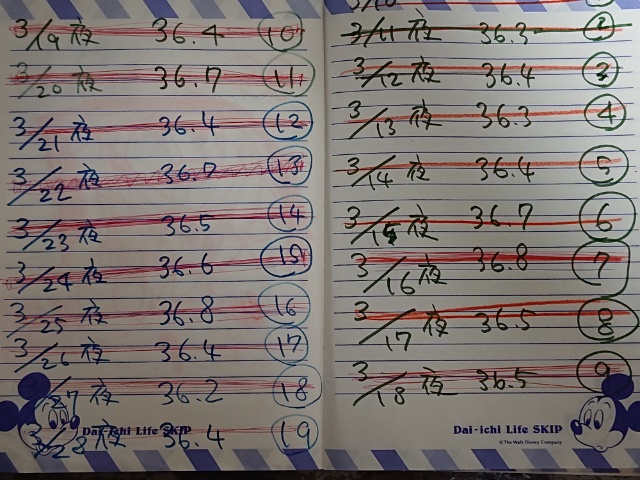 3/19 夜 36.4 10
3/20 夜 36.7 11
3/21 夜 36.4 12
3/22 夜 36.7 13
3/23 夜 36.5 14
3/24 夜 36.6 15
3/25 夜 36.8 16
3/26 夜 36.4 17
夜 36.2 18
3/28 夜 36.4 19
Dai-ichi Life SKIP
3/11 夜 36.3 2
3/12 夜 36.4 3
3/13 夜 36.3 4
3/14 夜 36.4 5
3/15 夜 36.7 6
3/16 夜 36.8 7
3/17 夜 36.5 8
3/18 夜 36.5 9
Dai-ichi Life SKIP
© The Walt Disney Company